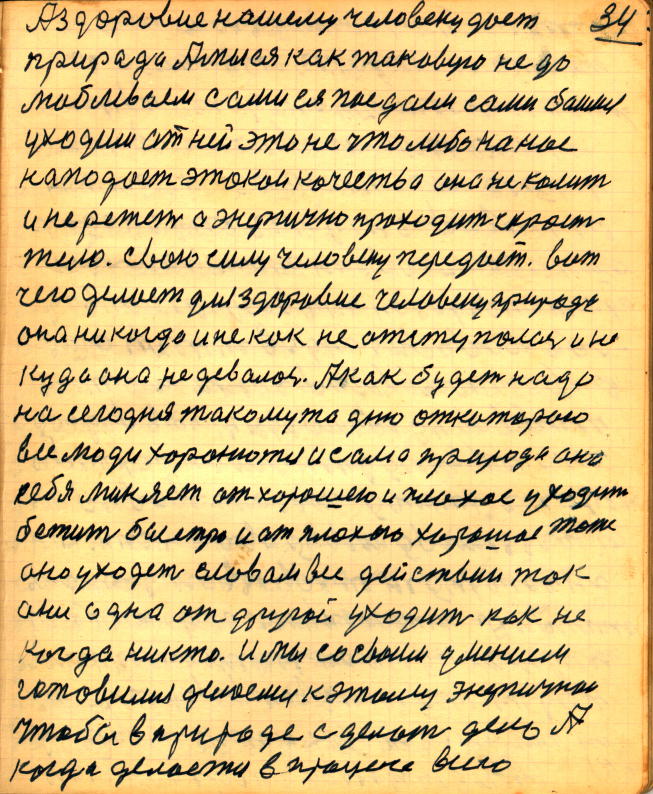 34
А здоровие нашему человеку дает
природа А мы ся как таковую не до
люблеваем сами ся поедаем сами
уходим от ней это не что либо на нас
нападает этакои качества она не колит
и не режет а энергично проходит скрость
тело. Свою силу человеку передает. вот
чего делает для здоровие человеку природа
она никогда и не как не отступалася и не
куда она не девалася. А как будет надо
на сегодня такому то дню от которого
все люди хоронются и сама природа она
себя меняет от хорошего и плохое уходит
бежит быстро и от плохого хорошое тоже
оно уходет словам все действии так
они одна от другой уходит как не
когда никто. И мы со своим умением
готовимся делаемся к этому энергичное
чтобы в природе сделат день А
когда делается в процесе всего